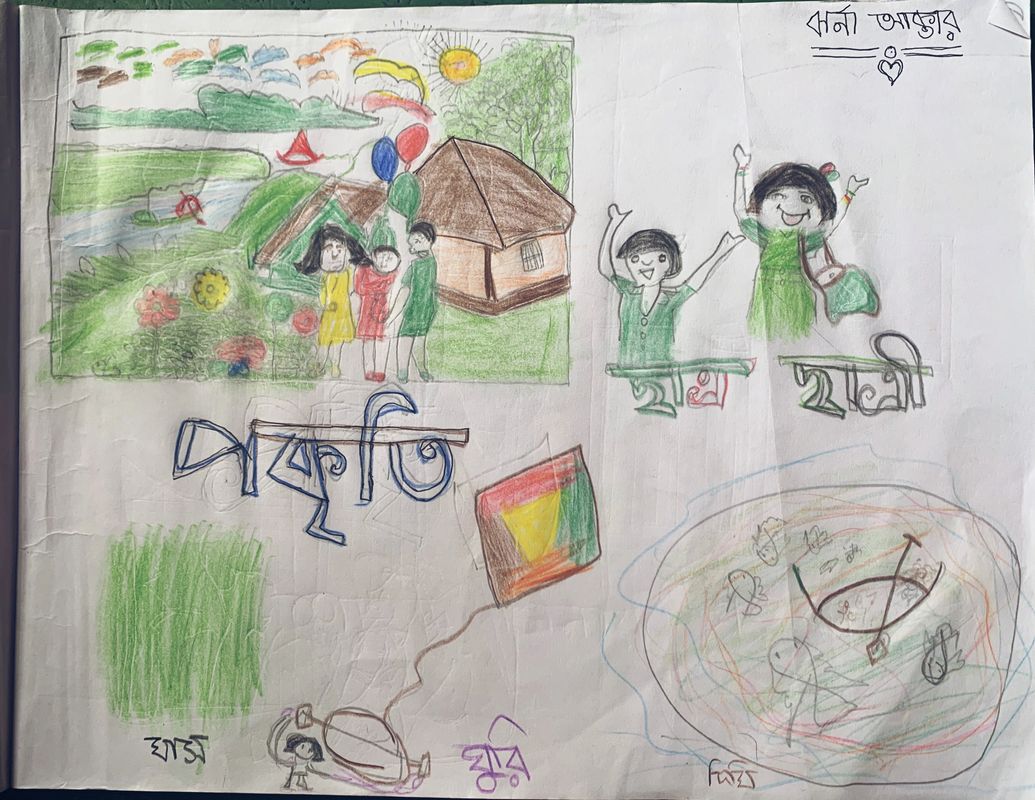 ঝর্না আক্তার
ছাত্র ছাত্রী
পকৃতি
ঘাস
ঘুরি
দিঘি